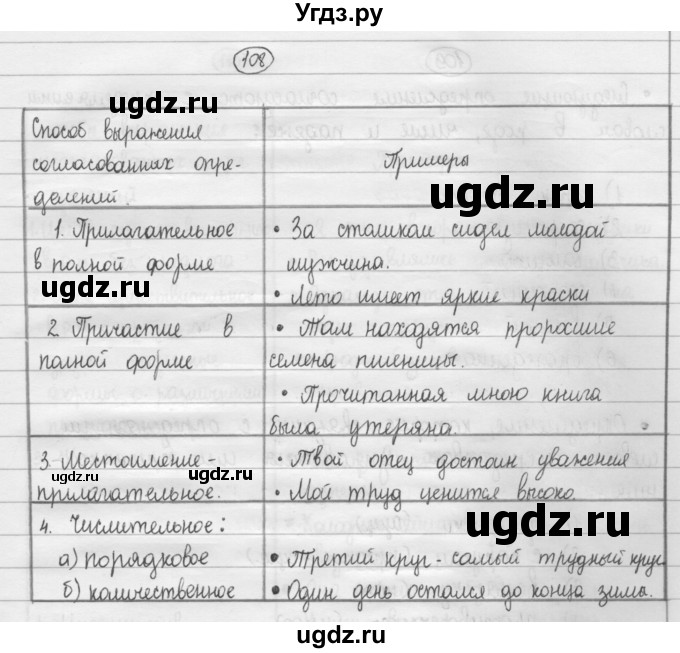 Угдз.ру
108
ugdz.ru
Способ выражения
согласованных опре-
делений
Примеры
ugdz.ru
1. Прилагательное
в полной форме
ugdz.ru
• За столиком сидел молодой
мужчина.
• Лето имеет яркие краски
2. Причастие в
полной форме
• Там находятся проросшие
семена пшеницы.
• Прочитанная мною книга
была утеряна.
3. Местоимение-
прилагательное.
ugdz.ru
ugdz.ru
• Твой отец достоин уважения
• Мой труд ценится высоко.
4. Числительное:
а) порядковое
б) количественное
ugdz.ru
• Третий круг - самый трудный круг.
• Один день остался до конца зима.
ugdz.ru